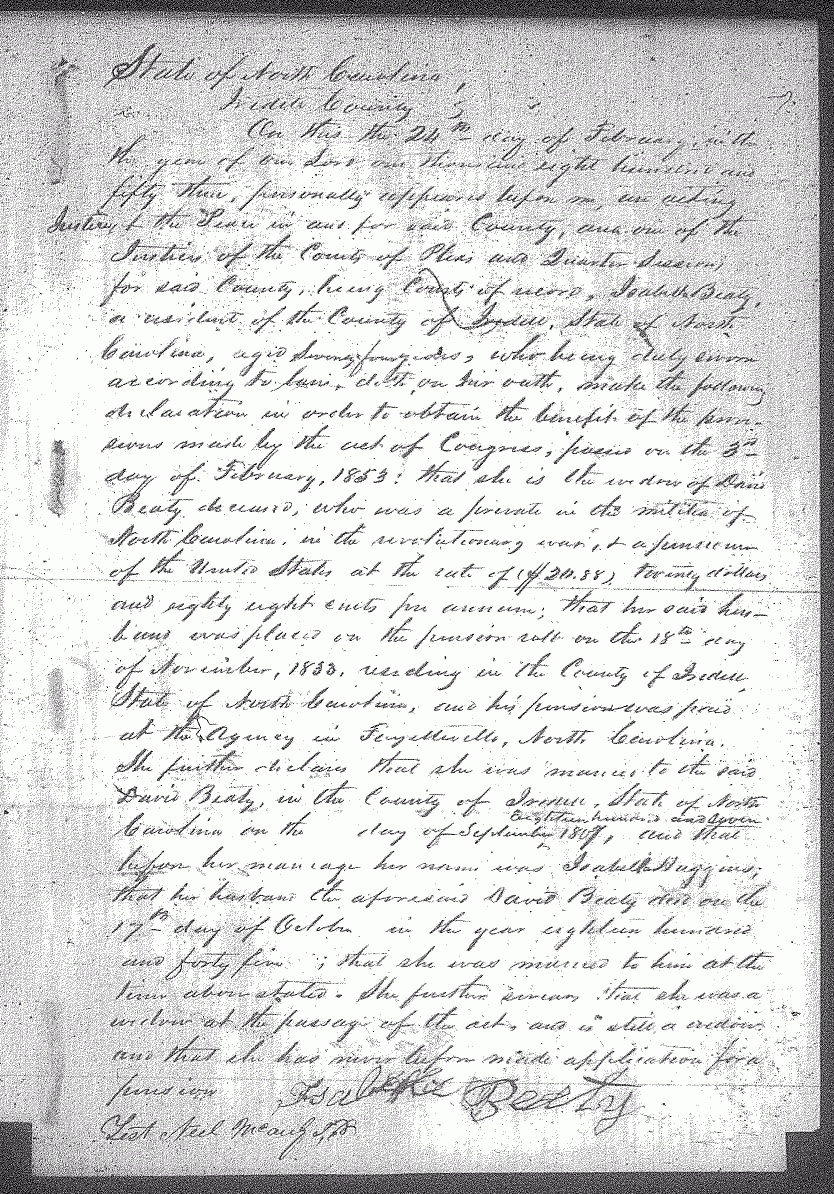 State of North Carolina,
Iredell County
On this the 24th day of February, in the
the year of our Lord one thousand eight hundred and
fifty three, personally appeared before me, an acting
Justice of the Peace in and for said County, and one of the
Justices of the County of Pleas and Quarter Sessions
for said County, being Court of record, Isabella Beaty,
a resident of the County of Iredell, State of North
Carolina, aged Seventy four years, who being duly sworn
according to law, doth on her oath, make the following
declaration in order to obtain the benefit of the provi-
sions made by the act of Congress, passed on the 3rd
day of February, 1853: that she is the widow of David
Beaty deceased, who was a private in the militia of
North Carolina, in the revolutionary war, & a pensioner
of the United States at the rate of ($20.88) twenty dollars
and eighty eight cents per annum; that her said hus-
band was placed on the pension roll on the 18th day
of November, 1833, residing in the County of Iredell,
State of North Carolina, and his pension was paid
at the Agency in Fayetteville, North Carolina.
She further declares that she was married to the said
David Beaty, in the County of Iredell, State of North
eighteen hundred and seven
Carolina on the day of September 1807, and that
before her marriage her name was Isabella Huggins;
that her husband the aforesaid David Beaty died on the
17th day of October in the year eighteen hundred
and forty five ; that she was married to him at the
time above stated. She further swears that she was a
widow at the passage of the act, and is still a widow
and that she has never before made application for a
pension
Beaty
Test Neel